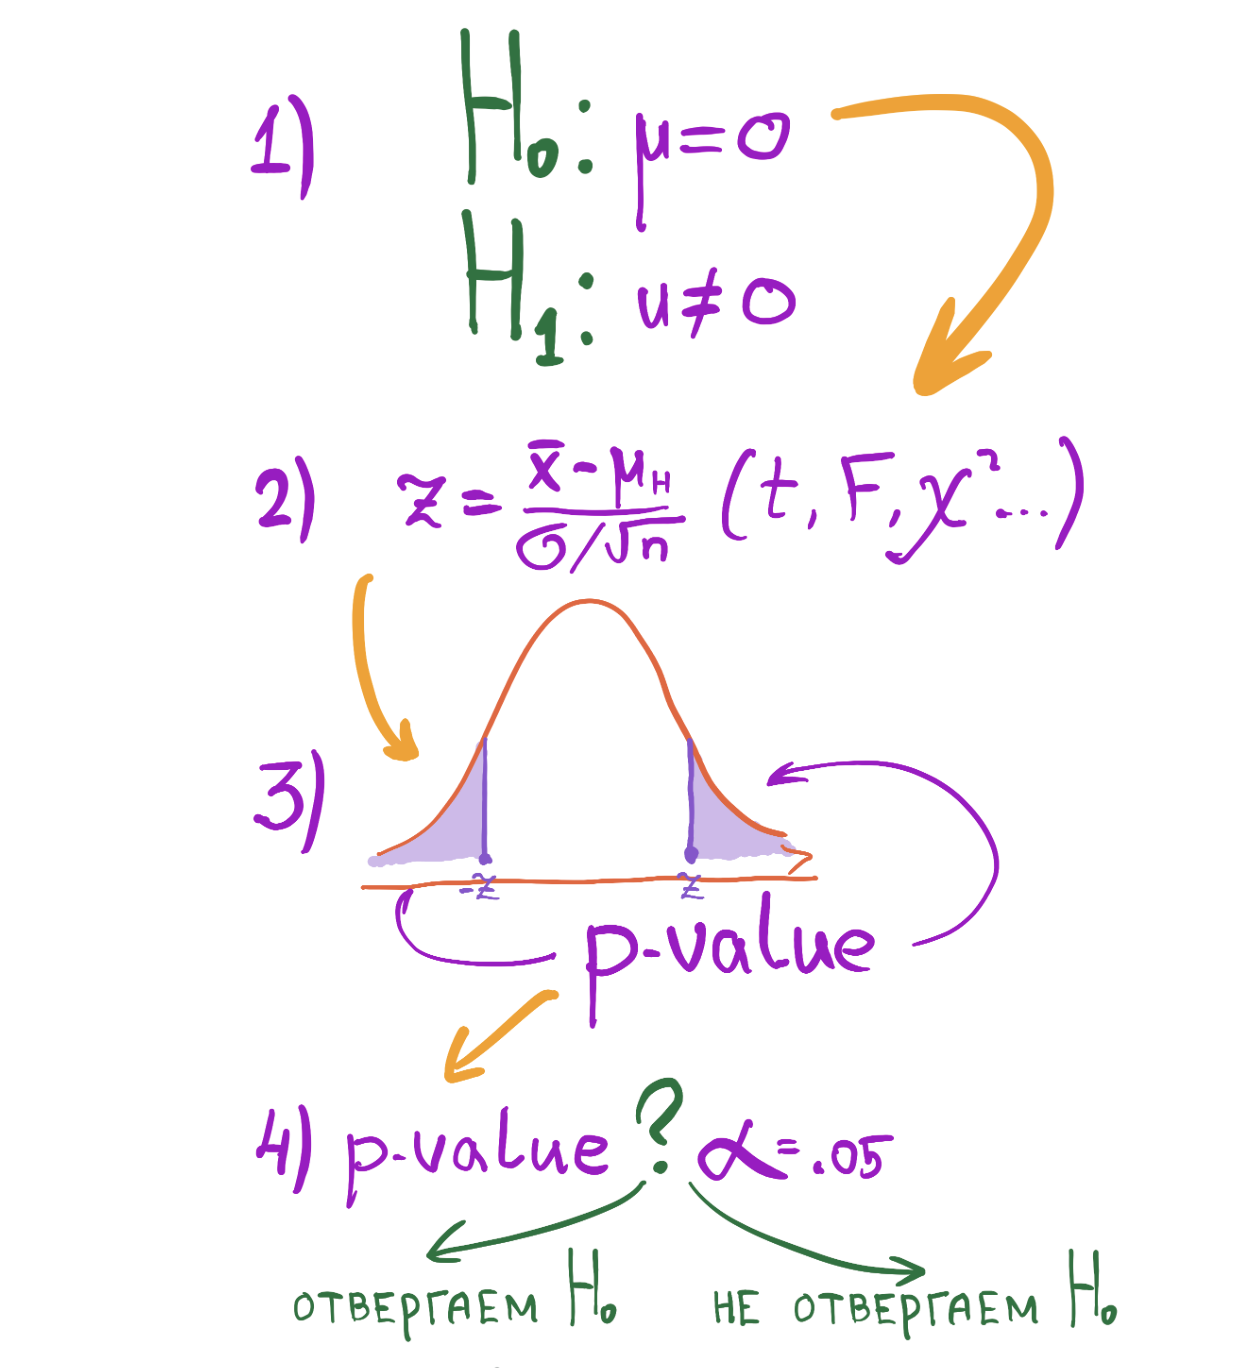 1) H₀: μ=0
H₁: u≠0
2) z = (x̄ - μ_H) / (σ/√n) (t, F, χ²...)
3)
-z z
p-value
4) p-value ? α=.05
ОТВЕРГАЕМ H₀ НЕ ОТВЕРГАЕМ H₀